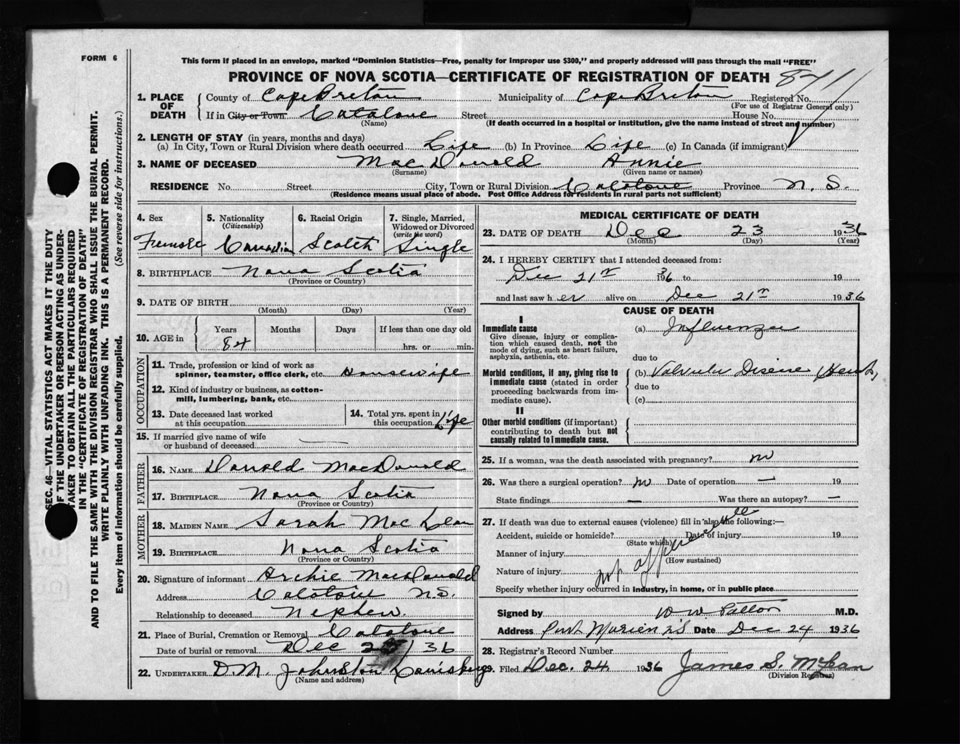 FORM 6
This form if placed in an envelope, marked "Dominion Statistics—Free, penalty for improper use $300," and properly addressed will pass through the mail "FREE"
PROVINCE OF NOVA SCOTIA—CERTIFICATE OF REGISTRATION OF DEATH
1. PLACE OF DEATH County of Cape Breton Municipality of Cape Breton Registered No.
(For use of Registrar General only)
If in City or Town Catalone Street House No.
(Name) (If death occurred in a hospital or institution, give the name instead of street and number)
2. LENGTH OF STAY (in years, months and days)
(a) In City, Town or Rural Division where death occurred Life (b) In Province Life (c) In Canada (if immigrant)
3. NAME OF DECEASED MacDonald Annie
(Surname) (Given name or names)
RESIDENCE No. Street City, Town or Rural Division Catalone Province N. S.
(Residence means usual place of abode. Post Office Address for residents in rural parts not sufficient)
SEC. 46—VITAL STATISTICS ACT MAKES IT THE DUTY
OF THE UNDERTAKER OR PERSON ACTING AS UNDER-
TAKER TO OBTAIN ALL THE PARTICULARS REQUIRED
IN THE "CERTIFICATE OF REGISTRATION OF DEATH"
AND TO FILE THE SAME WITH THE DIVISION REGISTRAR WHO SHALL ISSUE THE BURIAL PERMIT.
WRITE PLAINLY WITH UNFADING INK. THIS IS A PERMANENT RECORD.
Every item of information should be carefully supplied. (See reverse side for instructions.)
4. Sex 5. Nationality 6. Racial Origin 7. Single, Married,
(Citizenship) Widowed or Divorced
(write the word)
Female Canadian Scotch Single
8. BIRTHPLACE Nova Scotia
(Province or Country)
9. DATE OF BIRTH
(Month) (Day) (Year)
10. AGE in Years Months Days If less than one day old
84 hrs. or min.
OCCUPATION
11. Trade, profession or kind of work as
spinner, teamster, office clerk, etc. Housewife
12. Kind of industry or business, as cotton-
mill, lumbering, bank, etc.
13. Date deceased last worked
at this occupation
14. Total yrs. spent in
this occupation Life
15. If married give name of wife
or husband of deceased
FATHER
16. NAME Donald MacDonald
17. BIRTHPLACE Nova Scotia
(Province or Country)
MOTHER
18. MAIDEN NAME Sarah MacLean
19. BIRTHPLACE Nova Scotia
(Province or Country)
20. Signature of informant Archie MacDonald
Address Catalone N.S.
Relationship to deceased Nephew
21. Place of Burial, Cremation or Removal Catalone
Date of burial or removal Dec 25/36
22. UNDERTAKER D.M. Johnston
(Name and address)
MEDICAL CERTIFICATE OF DEATH
23. DATE OF DEATH Dec 23 1936
(Month) (Day) (Year)
24. I HEREBY CERTIFY that I attended deceased from:
Dec 21st 1936 to 19
and last saw her alive on Dec 21st 1936
CAUSE OF DEATH
I
Immediate cause
Give disease, injury or complica-
tion which caused death, not the
mode of dying, such as heart failure,
asphyxia, asthenia, etc.
(a) Influenza
due to
Morbid conditions, if any, giving rise to
immediate cause (stated in order
proceeding backwards from im-
mediate cause).
(b) Valvular Disease Heart
due to
(c)
II
Other morbid conditions (if important)
contributing to death but not
causally related to immediate cause.
25. If a woman, was the death associated with pregnancy? no
26. Was there a surgical operation? no Date of operation – 19
State findings – Was there an autopsy? –
27. If death was due to external causes (violence) fill in also the following:—
Accident, suicide or homicide? Date of injury 19
(State which)
Manner of injury
(How sustained)
Nature of injury
not applicable
Specify whether injury occurred in industry, in home, or in public place
Signed by M.D.
Address Port Morien N.S. Date Dec 24 1936
28. Registrar's Record Number
Filed Dec. 24 1936 James S. McLean
(Division Registrar)